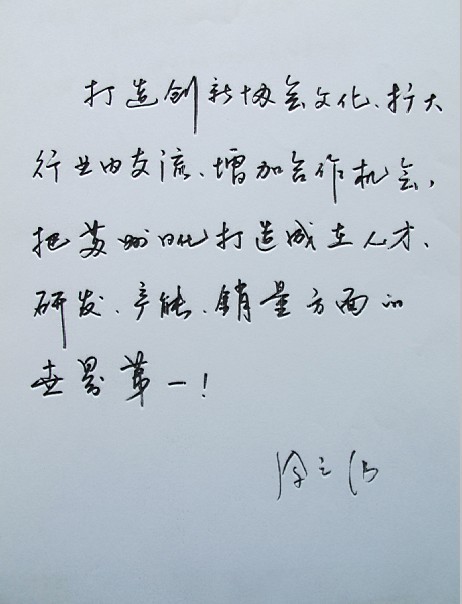 打造创新协会文化、扩大
行业内交流、增加合作机会,
把苏州日化打造成在人才、
研发、产能、销量方面的
世界第一!